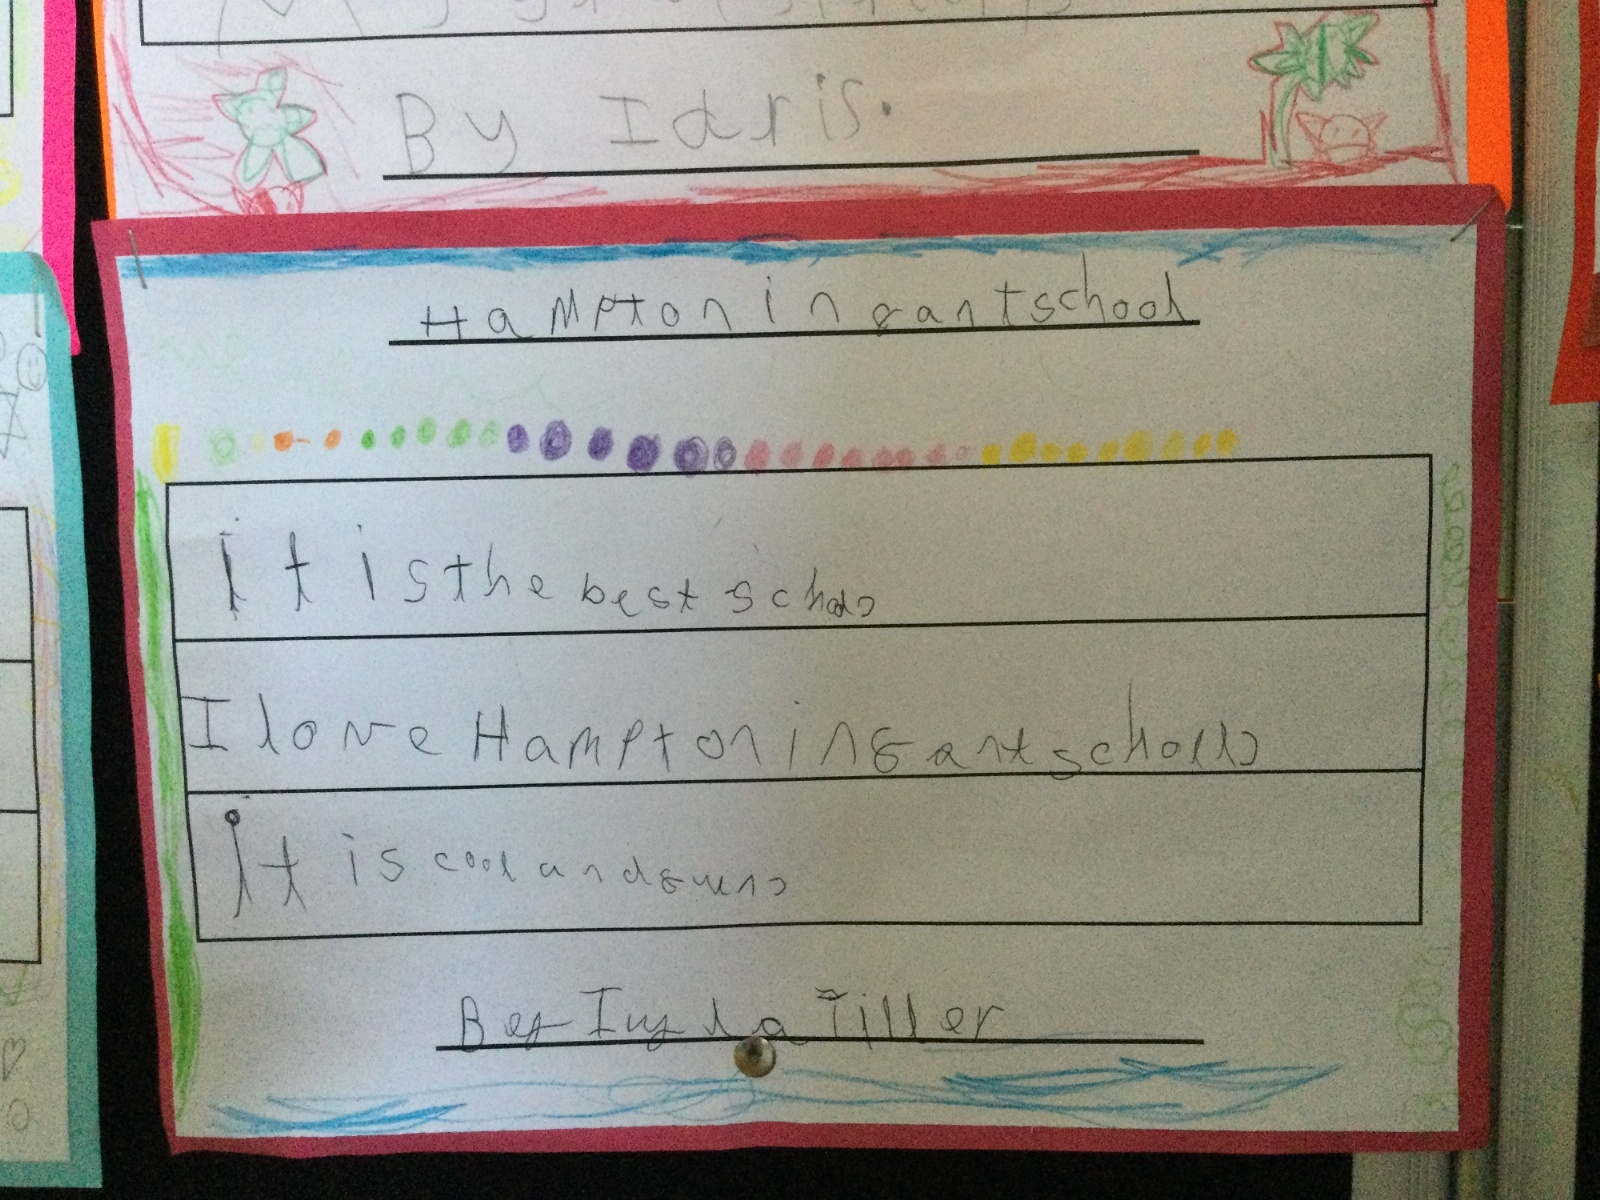 By Idris.
Hampton in gant school
it is the best schoo
I love Hampton in gant scholl
it is cool and
Tiller